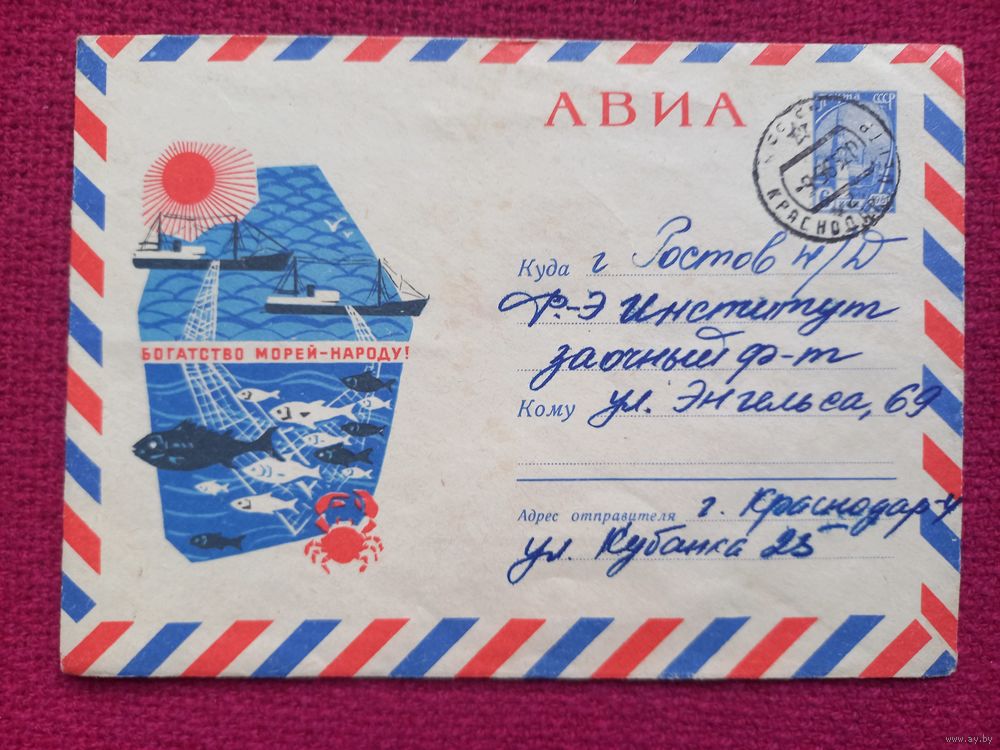 АВИА
ПОЧТА СССР
КРАСНОДАР
Куда г Ростов н/Д
Ф.-Э Институт
заочный ф-т
Кому ул. Энгельса, 69
БОГАТСТВО МОРЕЙ-НАРОДУ!
Адрес отправителя г. Краснодар-4
ул. Кубанка 25
www.ay.by